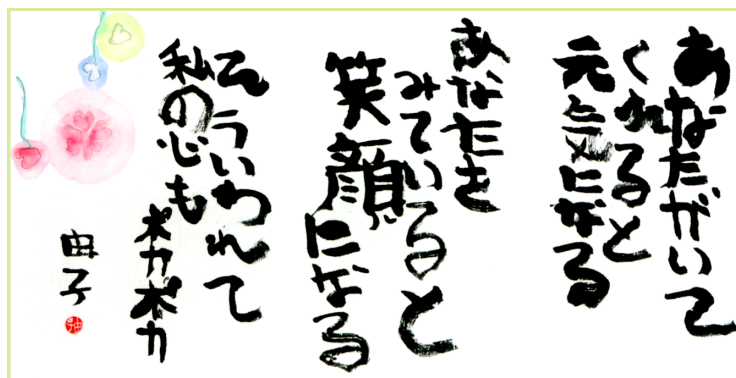 あなたがいて
くれると
元気になる
あなたを
みていると
笑顔になる
そういわれて
私の心も
ポカポカ
由子